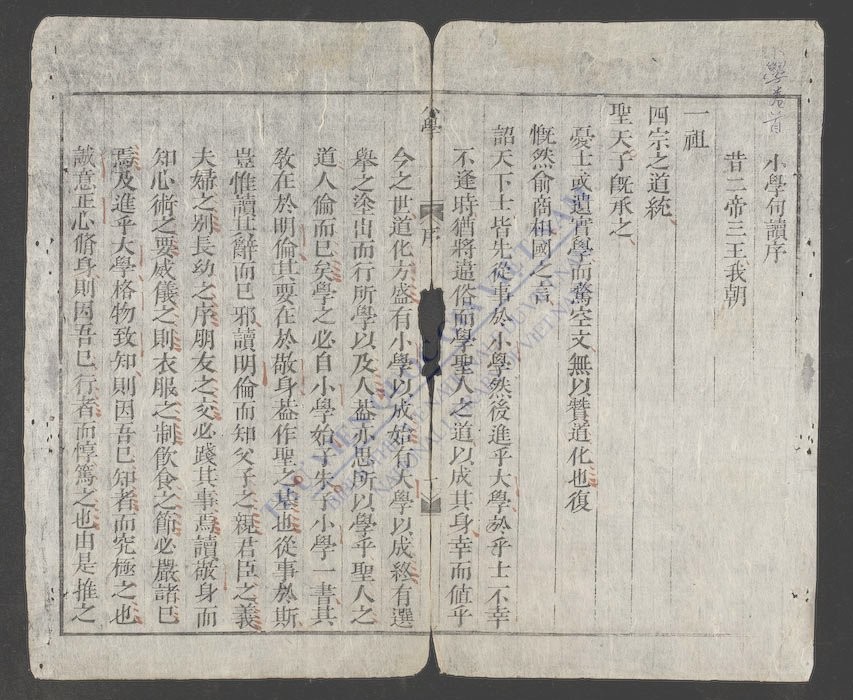 小學卷首
小學句讀序
昔二帝三王我朝
一祖
四宗之道統
聖天子既承之
憂士或遺實學而騖空文無以贊道化也復
慨然俞商祖國之言
詔天下士皆先從事於小學然後進乎大學於乎士不幸
不逢時猶將違俗而學聖人之道以成其身幸而值乎
小學
序
今之世道化方盛有小學以成始有大學以成終有選
舉之塗出而行所學以及人蓋亦思所以學乎聖人之
道人倫而已矣學之必自小學始子朱子小學一書其
教在於明倫其要在於敬身蓋作聖之基也從事於斯
豈惟讀其辭而已邪讀明倫而知父子之親君臣之義
夫婦之别長幼之序朋友之交必踐其事焉讀敬身而
知心術之要威儀之則衣服之制飲食之節必嚴諸己
焉及進乎大學格物致知則因吾已知者而究極之也
誠意正心脩身則因吾已行者而惇篤之也由是推之
THƯ VIỆN QUỐC GIA VIỆT NAM
NATIONAL LIBRARY OF VIETNAM